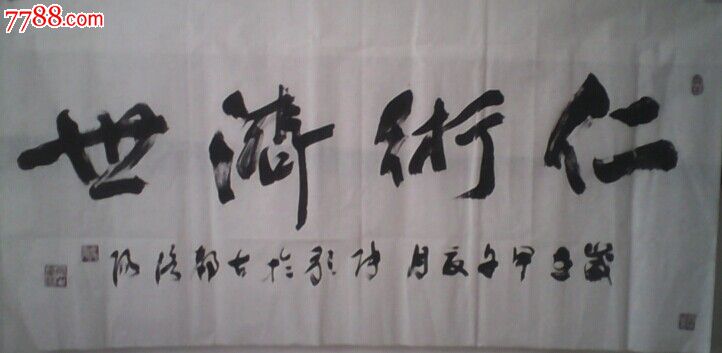 7788.com
仁術濟世
歲在甲午夏月於古都洛陽